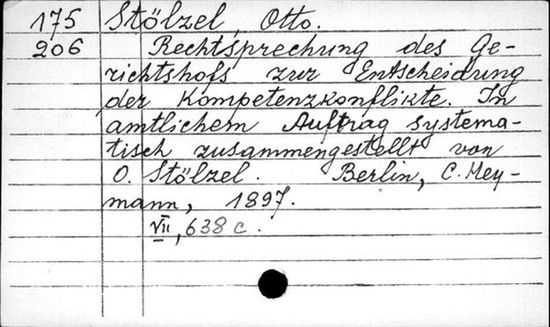 175 Stölzel, Otto.
206 Rechtsprechung des Ge-
richtshofs zur Entscheidung
der Kompetenzkonflikte. In
amtlichem Auftrag systema-
tisch zusammengestellt von
O. Stölzel. Berlin, C. Hey-
mann, 1897.
VII, 638 c.